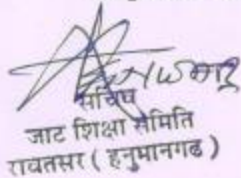 सचिव
जाट शिक्षा समिति
रावतसर ( हनुमानगढ )